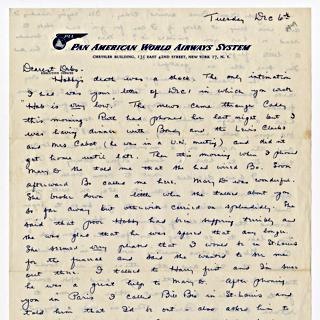 Tuesday Dec 6th
PAA
PAN AMERICAN WORLD AIRWAYS SYSTEM
CHRYSLER BUILDING, 135 EAST 42ND STREET, NEW YORK 17, N. Y.
EXECUTIVE OFFICES
Dearest Debs:
Hobby's death was a shock. The only intimation
I had was your letter of Dec 1 in which you wrote
"Hob is very low." The news came through Cadey
this morning. Bert had phoned her last night but I
was having dinner with Brady and the Lewis Clarks
and Mrs. Cabot (he was in a U.N. meeting) and didn't
get home until late. Then this morning when I phoned
Mary D. she told me that she had wired Bo. Soon
afterward Bo called me here. Mary D. was wonderful.
She broke down a little when she talked about you
so far away but otherwise carried on splendidly. She
said that poor Hobby had been suffering terribly and
she was glad that he was spared that any longer.
She seemed very pleased that I would be in St. Louis
for the funeral and said she wanted to see me
out there. I talked to Harry first and I'm sure
he was a great help to Mary D. After phoning
you in Paris I called Bill Bo in St. Louis and
told him that I'd be out & also asked him to